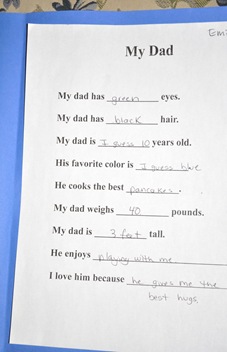 Emi
My Dad
My dad has green eyes.
My dad has black hair.
My dad is I guess 10 years old.
His favorite color is I guess blue
He cooks the best pancakes.
My dad weighs 40 pounds.
My dad is 3 feet tall.
He enjoys playing with me
I love him because he gives me the
best hugs.